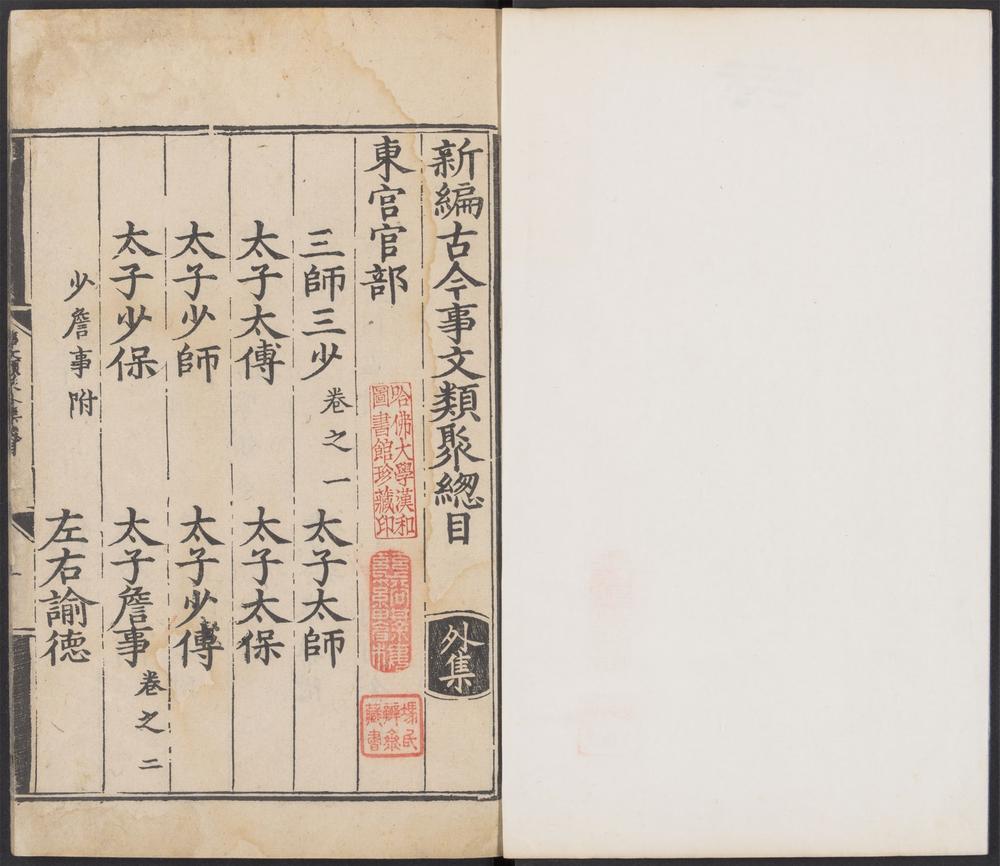 新編古今事文類聚緫目
外集
東宫官部
三師三少
卷之一
太子太師
太子太傅
太子太保
太子少師
太子少傅
太子少保
太子詹事
卷之二
少詹事附
左右諭徳
哈佛大學漢和
圖書館珍藏印
馮氏
辨齋
藏書